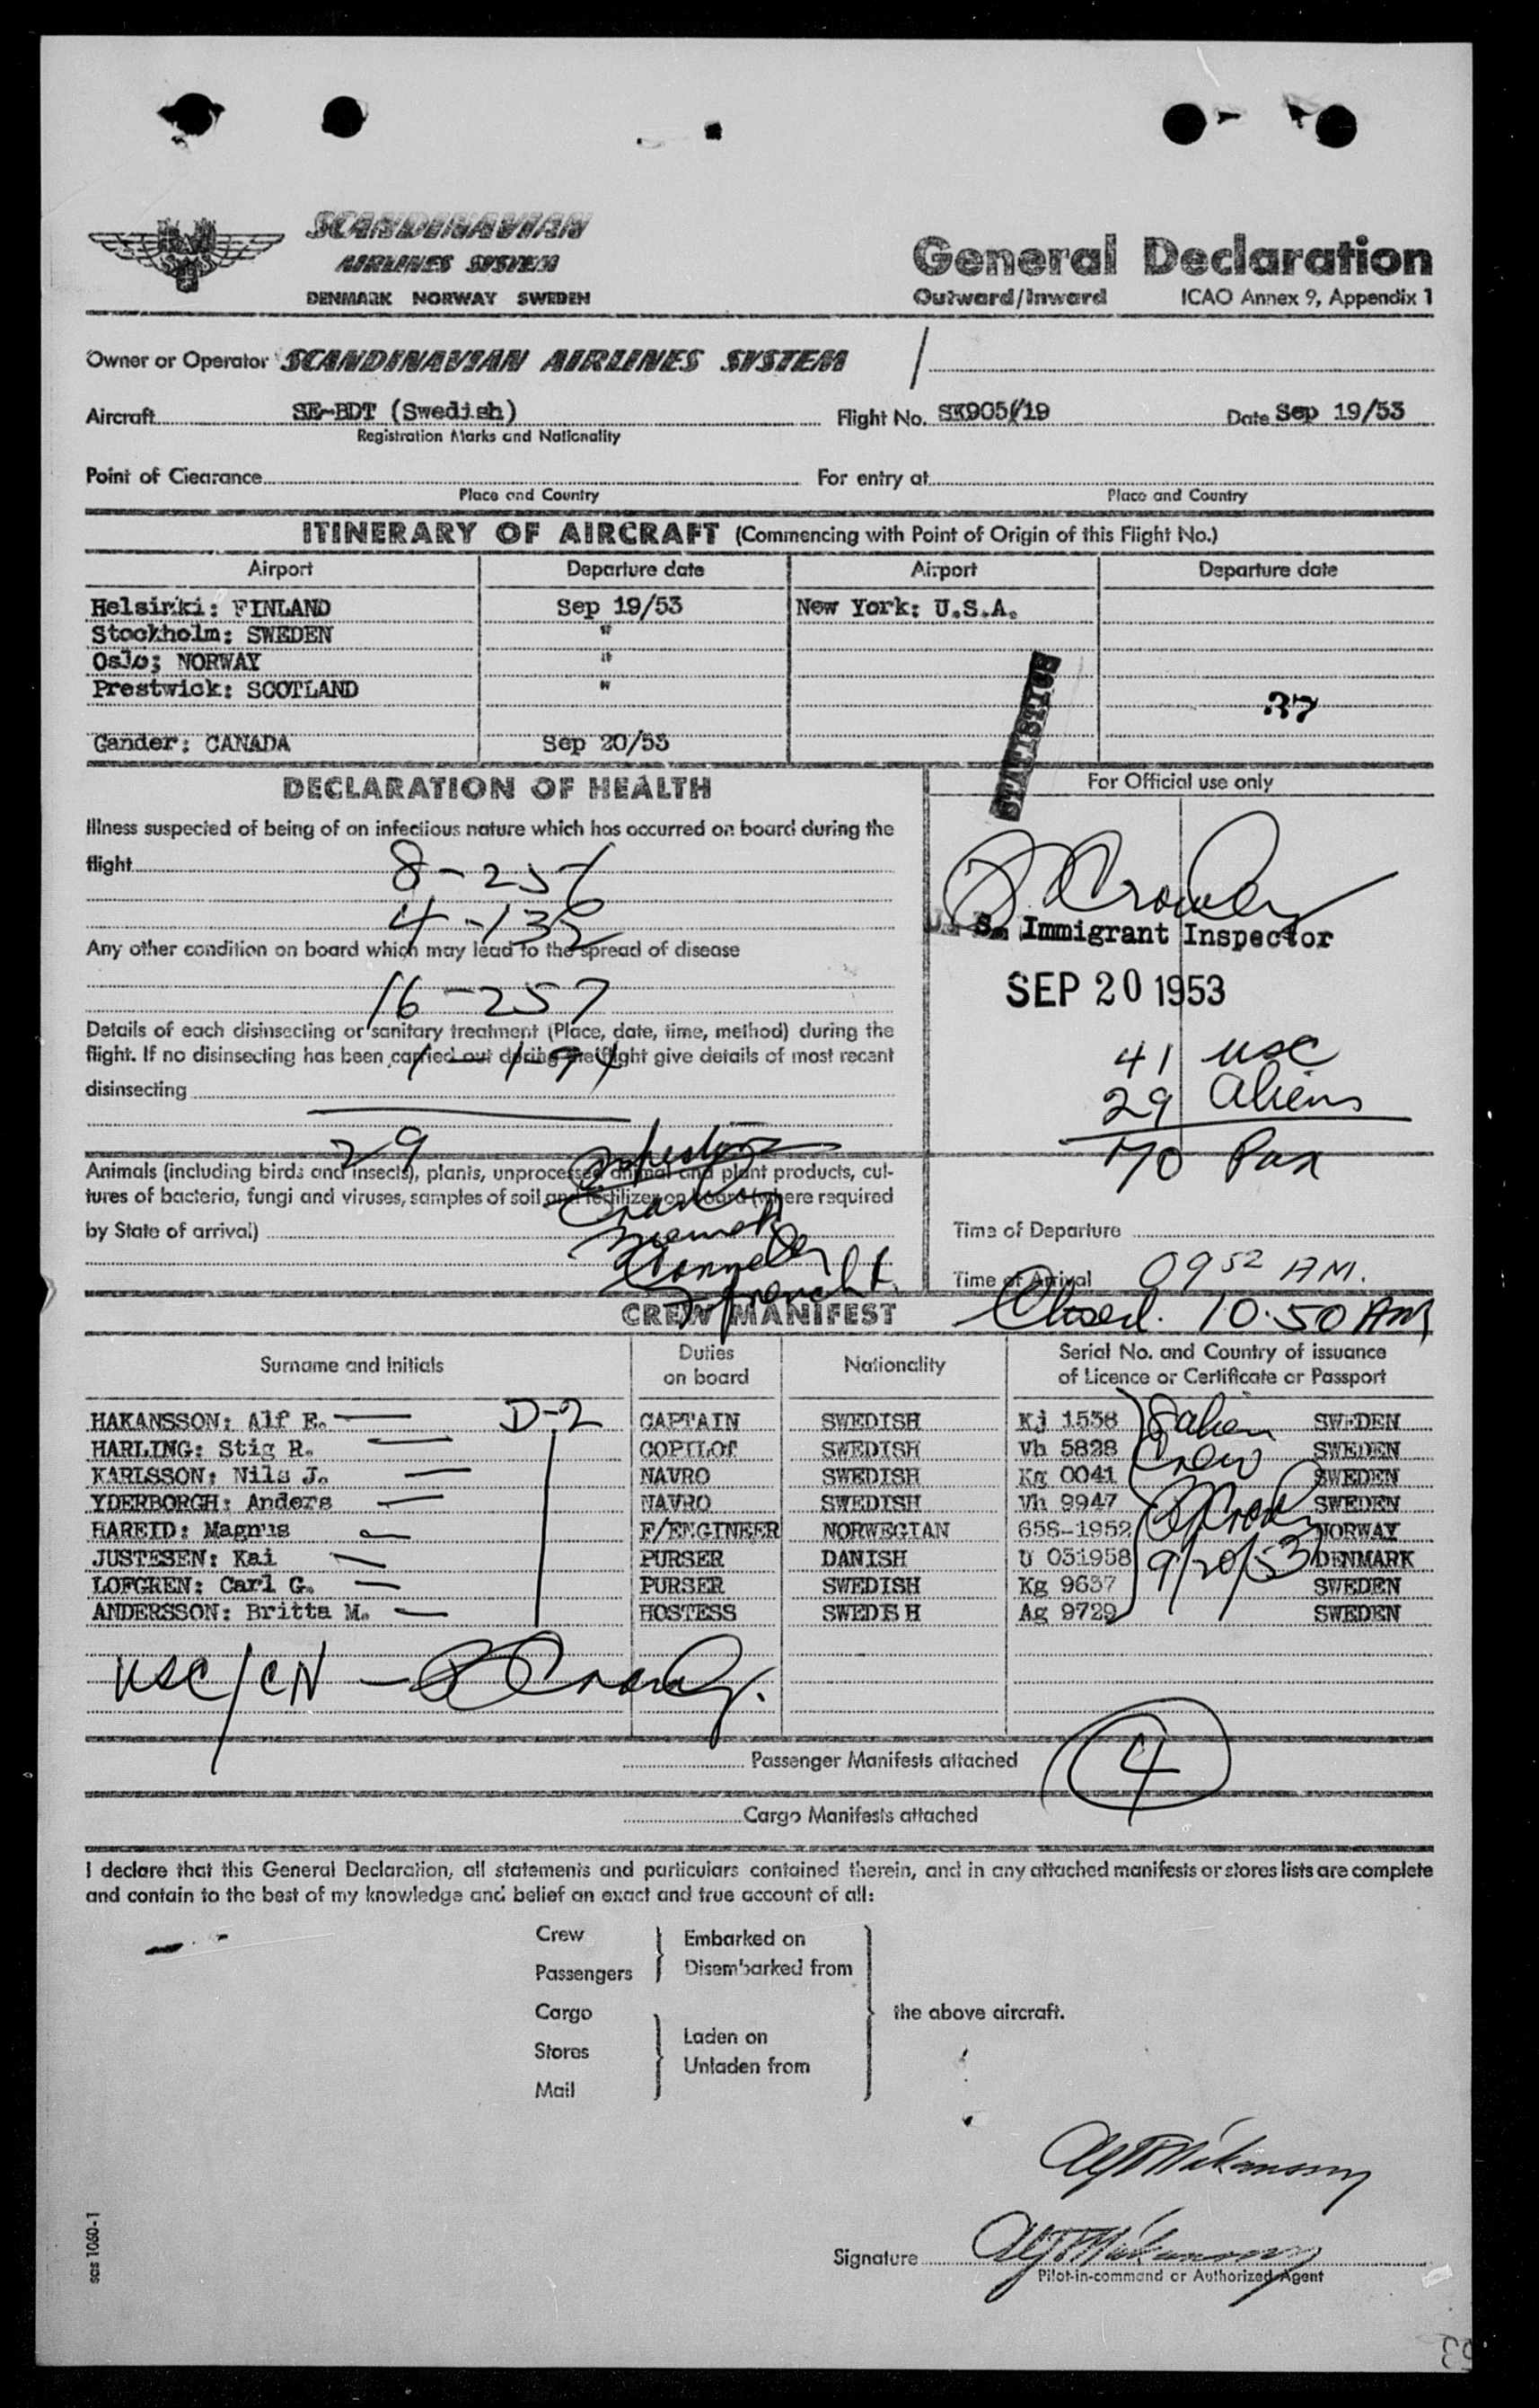 SCANDINAVIAN
AIRLINES SYSTEM
DENMARK NORWAY SWEDEN
General Declaration
Outward/Inward ICAO Annex 9, Appendix 1
Owner or Operator SCANDINAVIAN AIRLINES SYSTEM
Aircraft SE-BDT (Swedish) Flight No. SK905/19 Date Sep 19/53
Registration Marks and Nationality
Point of Clearance For entry at
Place and Country Place and Country
ITINERARY OF AIRCRAFT (Commencing with Point of Origin of this Flight No.)
Airport Departure date Airport Departure date
Helsinki: FINLAND Sep 19/53 New York: U.S.A.
Stockholm: SWEDEN "
Oslo; NORWAY "
Prestwick: SCOTLAND "
STATISTICS
37
Gander: CANADA Sep 20/53
DECLARATION OF HEALTH
For Official use only
Illness suspected of being of an infectious nature which has occurred on board during the
flight
Any other condition on board which may lead to the spread of disease
16-257
Details of each disinsecting or sanitary treatment (Place, date, time, method) during the
flight. If no disinsecting has been carried out during the flight give details of most recent
disinsecting
29
Animals (including birds and insects), plants, unprocessed animal and plant products, cul-
tures of bacteria, fungi and viruses, samples of soil and fertilizer on board (where required
by State of arrival)
Crowley
U. S. Immigrant Inspector
SEP 20 1953
41 USC
29 Aliens
70 Pax
Time of Departure
Time of Arrival 0952 AM.
Closed. 10.50 AM
CREW MANIFEST
Surname and Initials Duties on board Nationality Serial No. and Country of issuance of Licence or Certificate or Passport
HAKANSSON: Alf E. D-2 CAPTAIN SWEDISH Kj 1538 SWEDEN
HARLING: Stig R. COPILOT SWEDISH Vh 5828 SWEDEN
KARLSSON: Nils J. NAVRO SWEDISH Kg 0041 SWEDEN
YDERBORGH: Anders NAVRO SWEDISH Vh 9947 SWEDEN
HAREID: Magnus F/ENGINEER NORWEGIAN 658-1952 NORWAY
JUSTESEN: Kai PURSER DANISH U 031958 DENMARK
LOFGREN: Carl G. PURSER SWEDISH Kg 9637 SWEDEN
ANDERSSON: Britta M. HOSTESS SWEDISH Ag 9729 SWEDEN
8 alien
Crew
9/20/53
USC/CN - Crowley.
Passenger Manifests attached
4
Cargo Manifests attached
I declare that this General Declaration, all statements and particulars contained therein, and in any attached manifests or stores lists are complete
and contain to the best of my knowledge and belief an exact and true account of all:
Crew Embarked on
Passengers Disembarked from
Cargo the above aircraft.
Laden on
Stores
Unladen from
Mail
Signature
Pilot-in-command or Authorized Agent
sas 1060-1